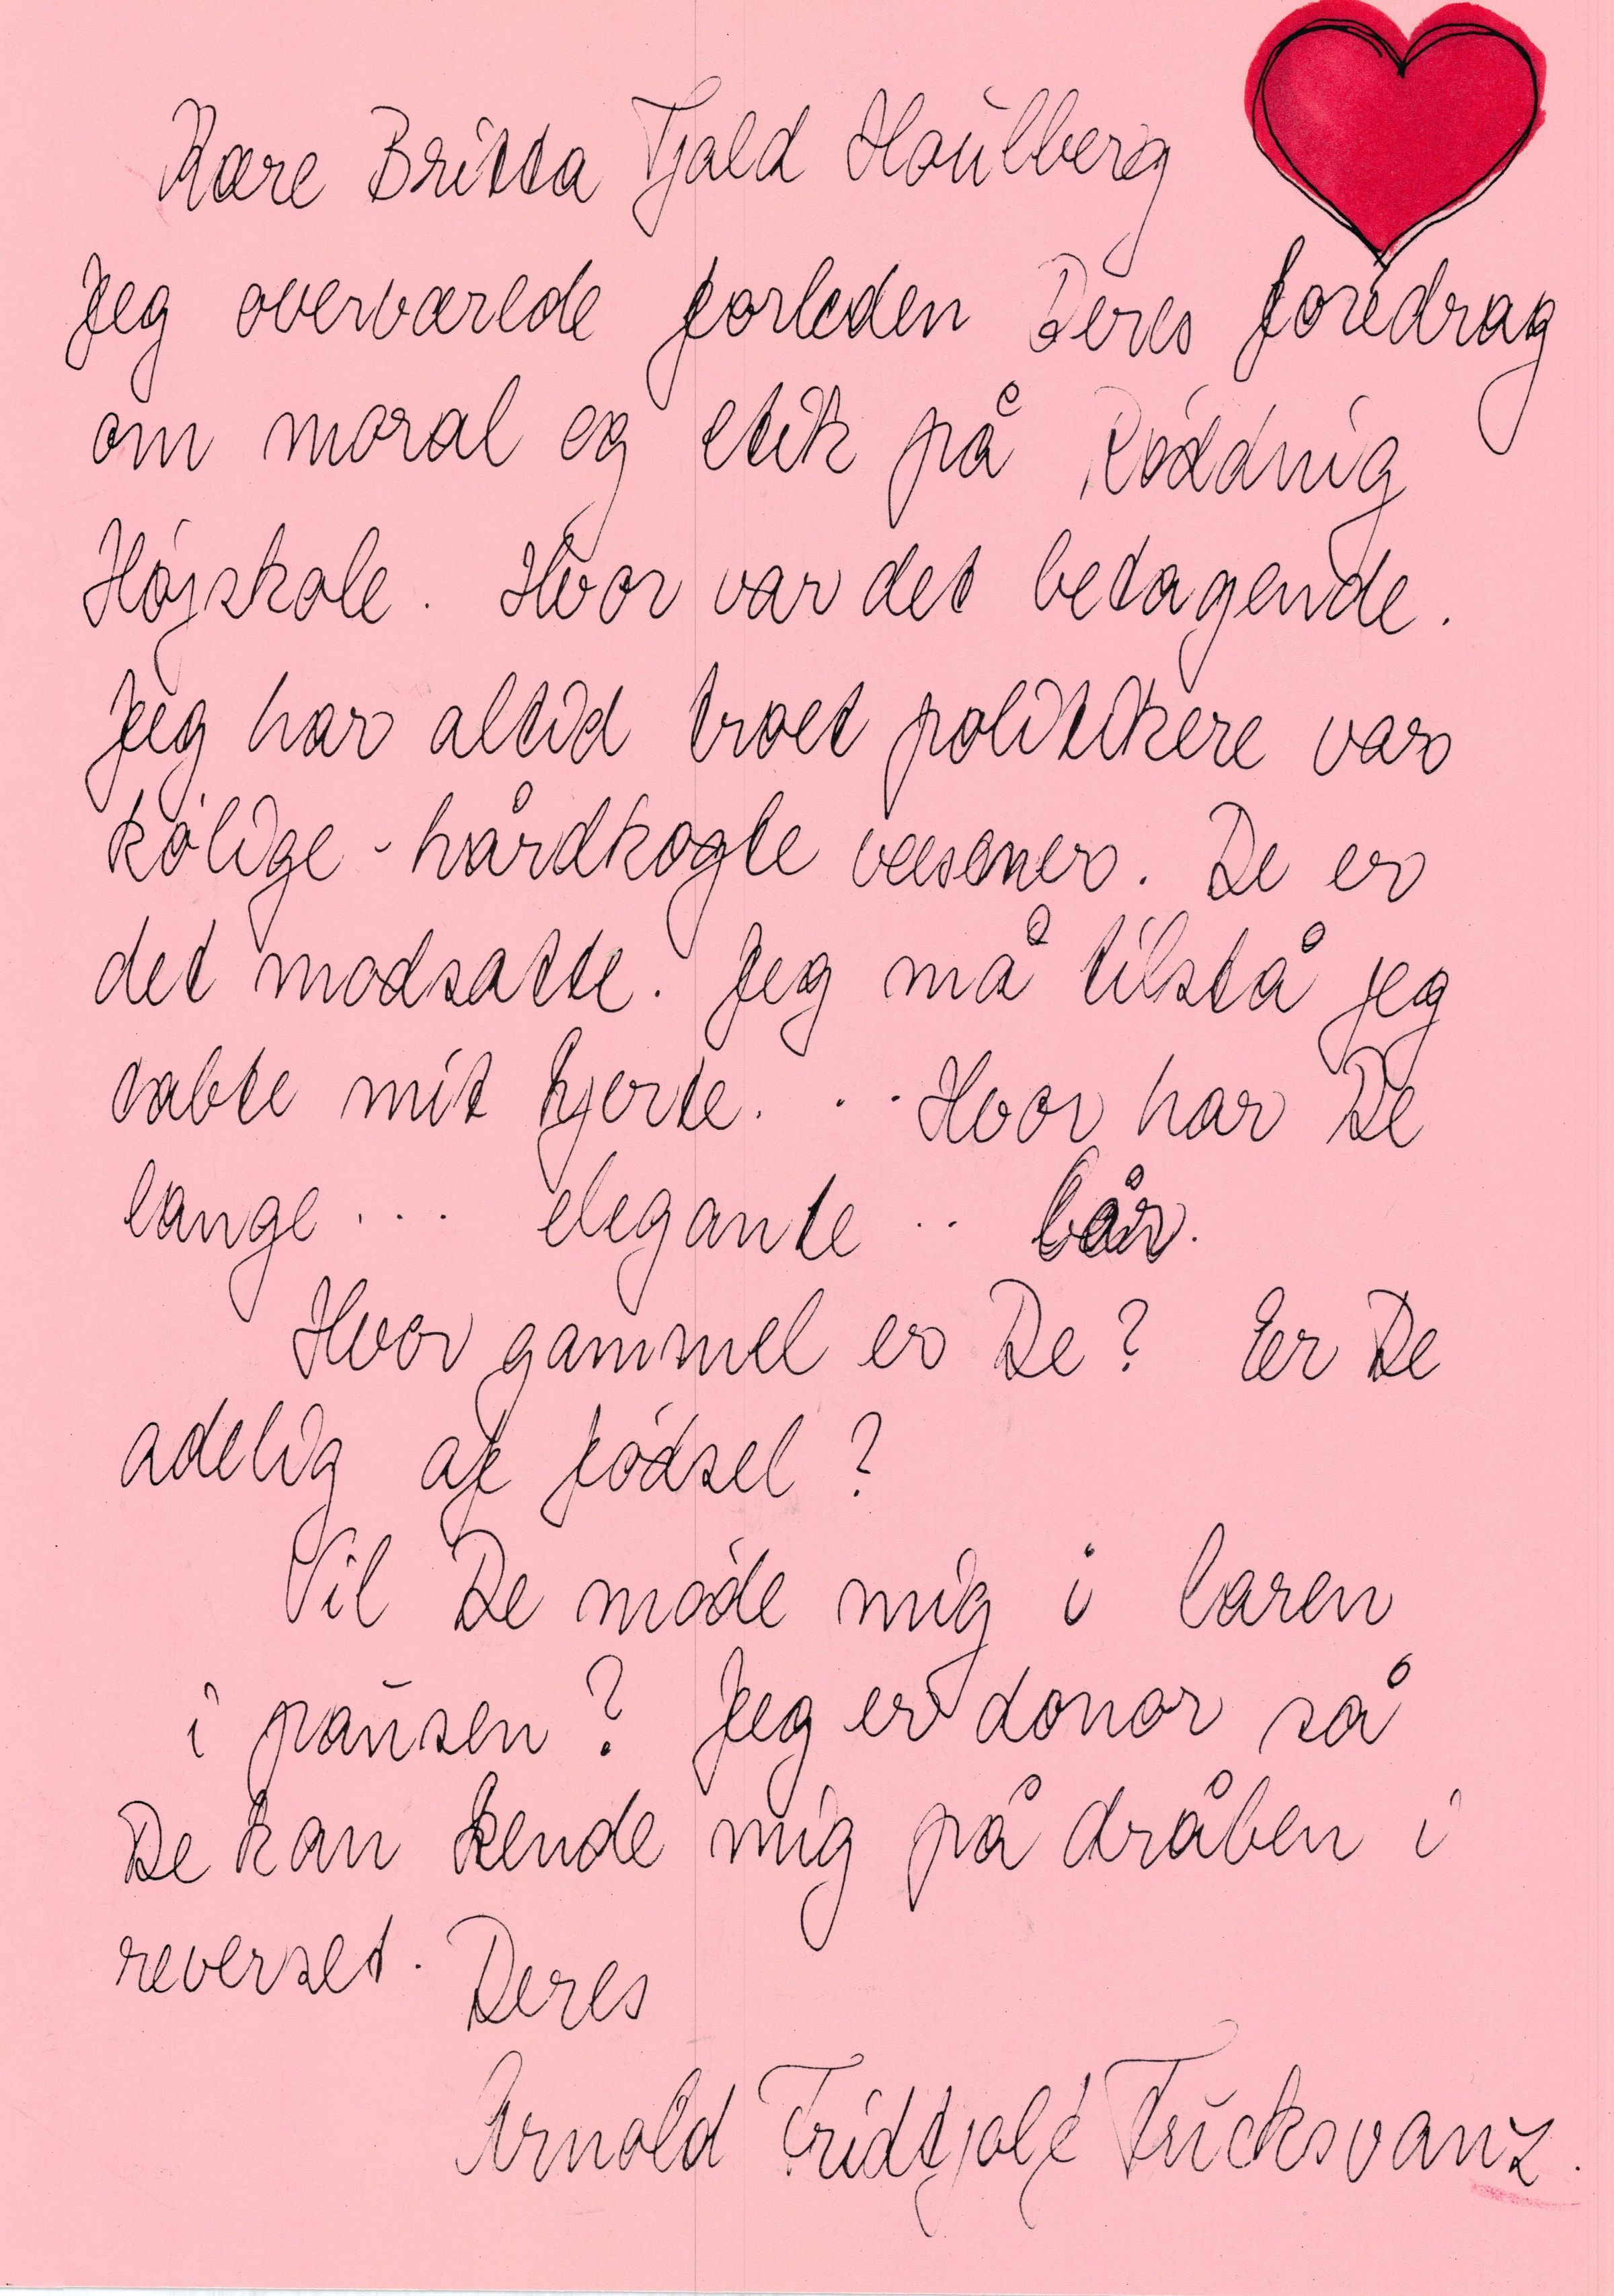 Kære Britta Tjald Houlberg
Jeg overværede forleden Deres foredrag
om moral og etik på Rødding
Højskole. Hvor var det betagende.
Jeg har altid troet politikere var
kølige - hårdkogte væsener. De er
det modsatte. Jeg må tilstå jeg
tabte mit hjerte. . . Hvor har De
lange . . . elegante . . lår.
Hvor gammel er De? Er De
adelig af fødsel?
Vil De møde mig i baren
i pausen? Jeg er donor så
De kan kende mig på dråben i
reverset. Deres
Arnold Fridtjolf Fucksvanz.